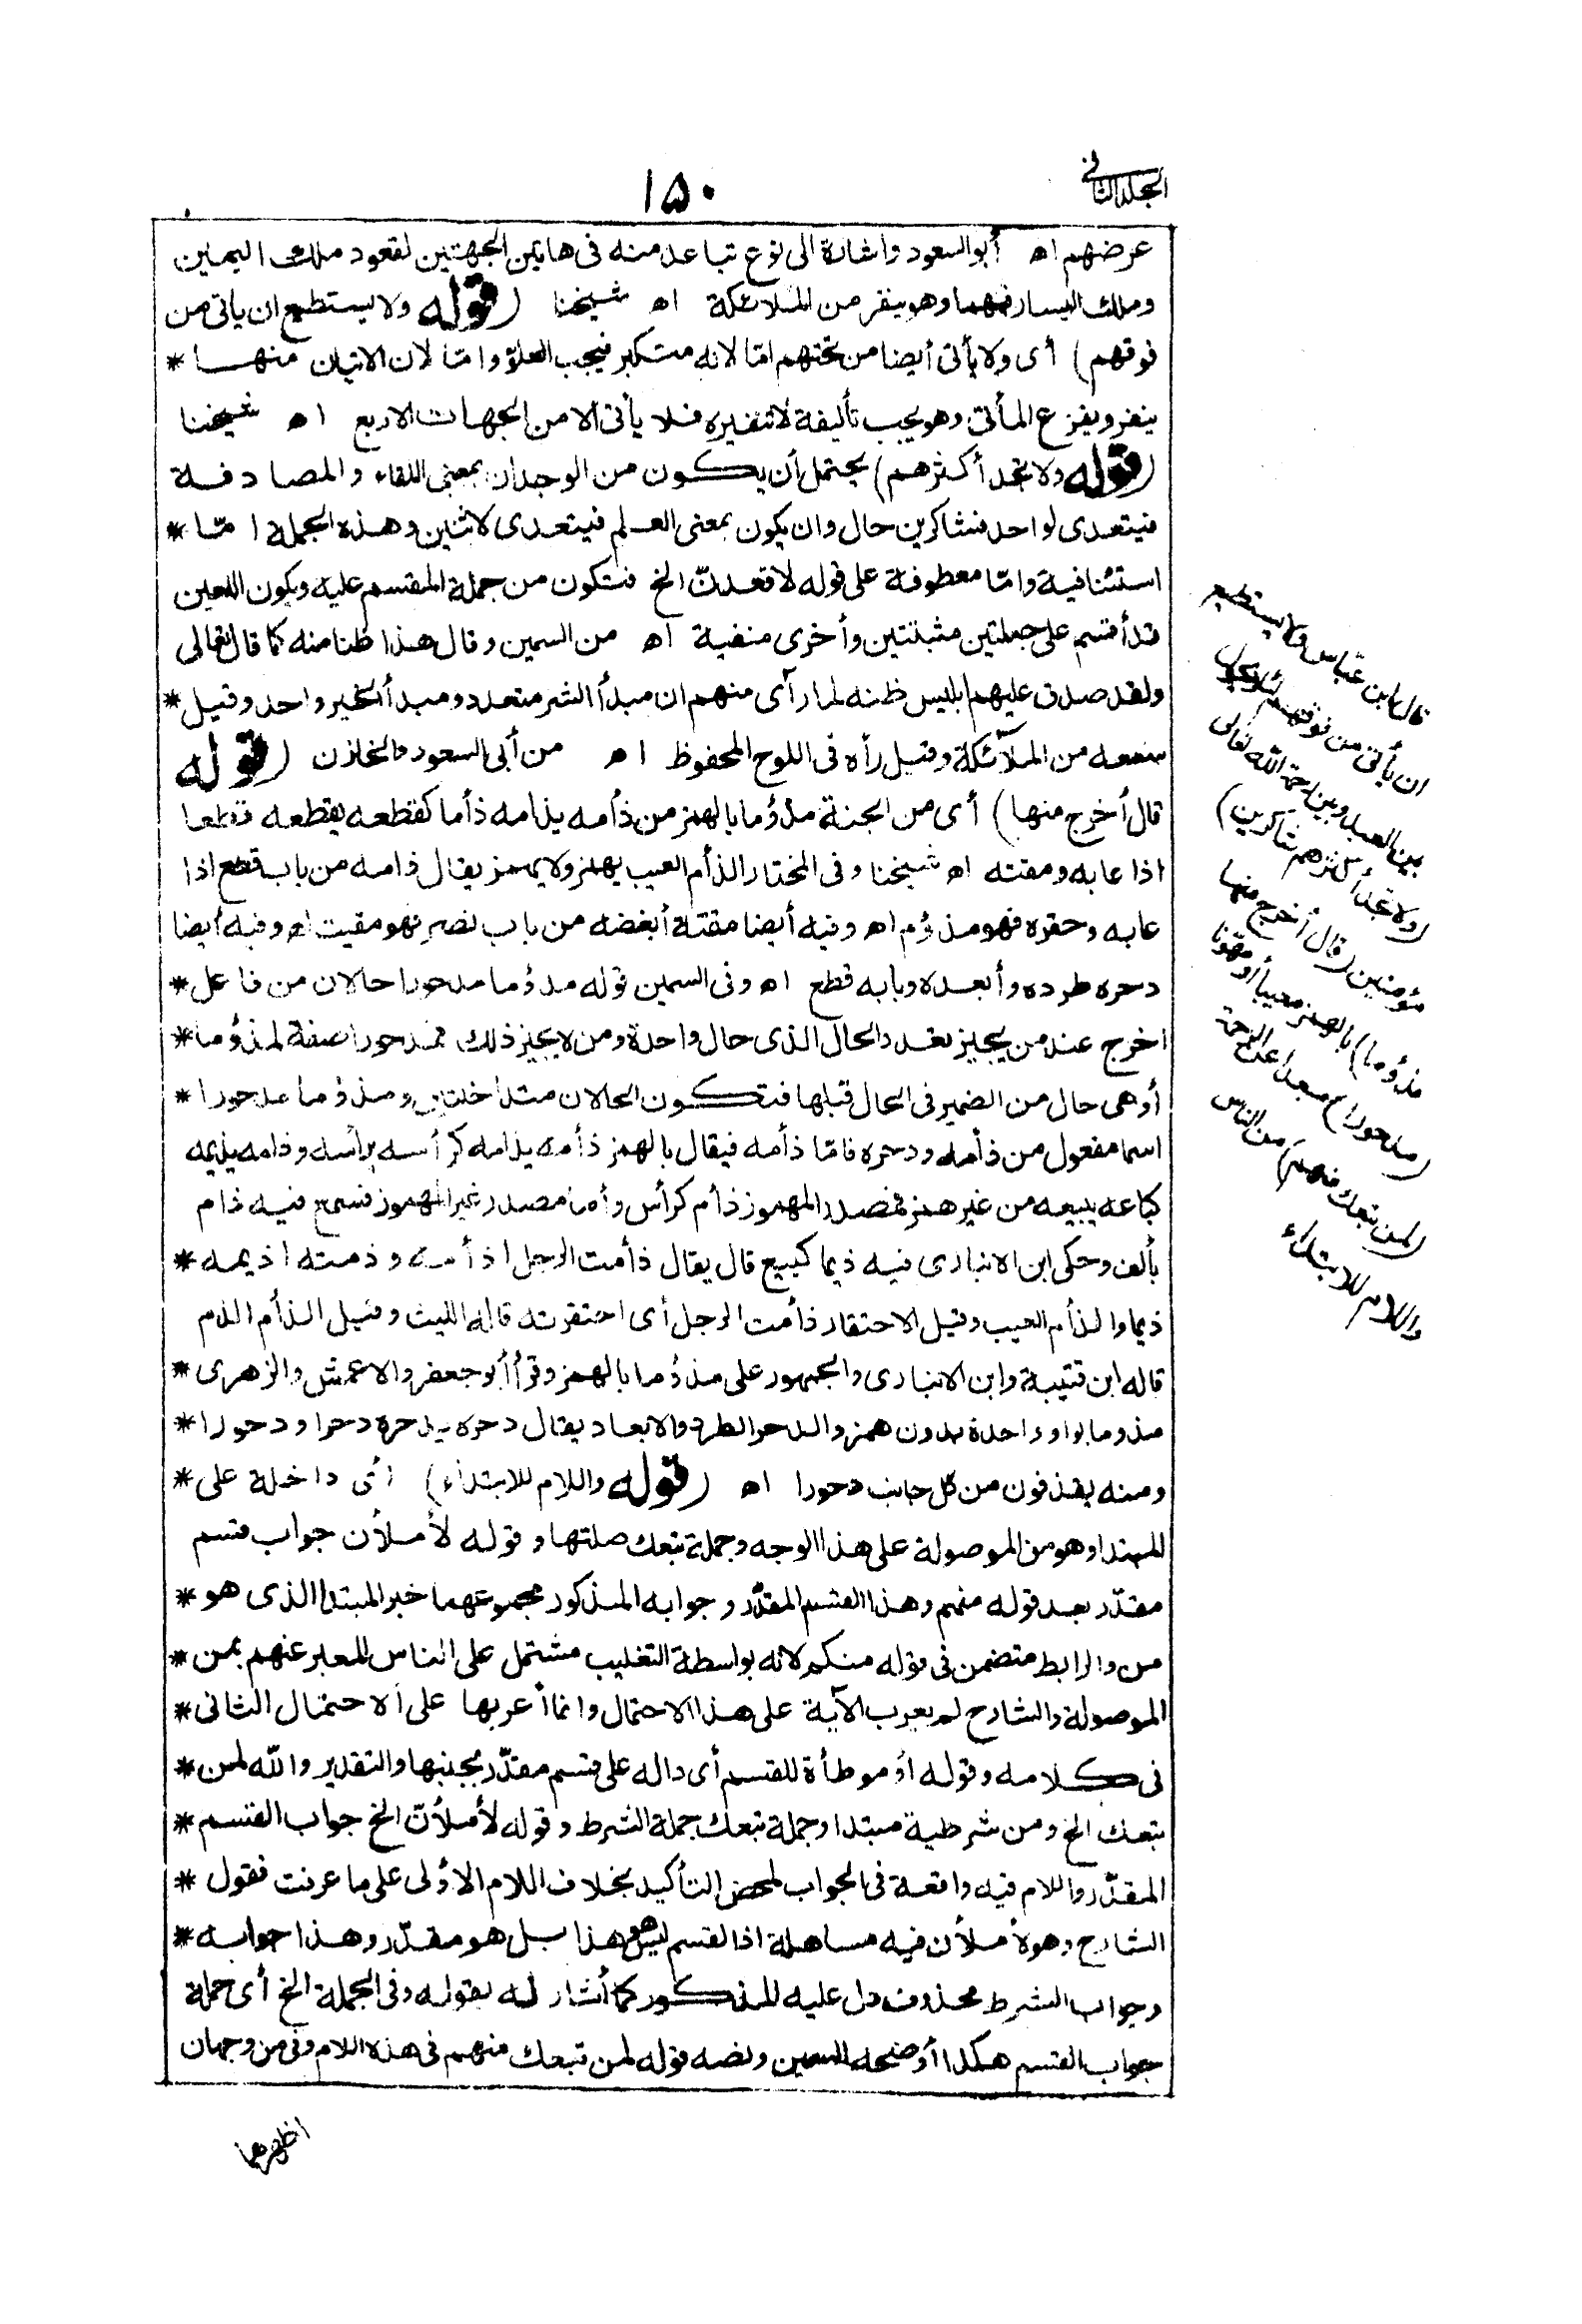 المجلد الثانى
١٥٠
عرضهم اه أبو السعود واشارة الى نوع تباعد منه فى هاتين الجهتين لقعود ملك اليمين
وملك اليسار فيهما وهو ينفر من الملائكة اه شيخنا (قوله ولا يستطيع ان يأتى من
فوقهم) أى ولا يأتى أيضا من تحتهم امّا لانه متكبر فيحب العلوّ وامّا لان الاتيان منها *
ينفر ويفزع المأتى وهو يحب تأليفه لا تنفيره فلا يأتى الا من الجهات الاربع اه شيخنا
(قوله ولا تجد أكثرهم) يحتمل أن يكون من الوجدان بمعنى اللقاء والمصادفة
فيتعدى لواحد فشاكرين حال وان يكون بمعنى العلم فيتعدى لاثنين وهذه الجملة امّا *
استئنافية وامّا معطوفة على قوله لاقعدنّ الخ فتكون من جملة المقسم عليه ويكون اللعين
قد أقسم على جملتين مثبتتين وأخرى منفية اه من السمين وقال هذا ظنا منه كما قال تعالى
ولقد صدق عليهم ابليس ظنه لما رآى منهم ان مبدأ الشر متعدد ومبدأ الخير واحد وقيل *
سمعه من الملآئكة وقيل رأه فى اللوح المحفوظ اه من أبى السعود والخازن (قوله
قال أخرج منها) أى من الجنة مذؤما بالهمز من ذأمه يذامه ذأما كقطعه يقطعه قطعا
اذا عابه ومقته اه شيخنا وفى المختار الذأم العيب يهمز ولا يهمز يقال ذامه من باب قطع اذا
عابه وحقره فهو مذؤم اه وفيه أيضا مقته أبغضه من باب نصر فهو مقيت اه وفيه أيضا
دحره طرده وأبعده وبابه قطع اه وفى السمين قوله مذؤما مدحورا حالان من فاعل *
اخرج عند من يجيز تعدد الحال الذى حال واحدة ومن لا يجيز ذلك فمدحورا صفة لمذؤما *
أو هى حال من الضمير فى الحال قبلها فتكون الحالان متداخلتين ومذؤما مدحورا *
اسما مفعول من ذأمه ودحره فامّا ذأمه فيقال بالهمز ذأمه يذامه كرأسه يرأسه وذامه يذيمه
كباعه يبيعه من غير همز فمصدر المهموز ذأم كرأس وأما مصدر غير المهموز فسمع فيه ذام
بألف وحكى ابن الانبارى فيه ذيما كبيع قال يقال ذأمت الرجل اذأمه وذمته اذيمه *
ذيما والذأم العيب وقيل الاحتقار ذأمت الرجل أى احتقرته قاله الليث وقيل الذأم الذم
قاله ابن قتيبة وابن الانبارى والجمهور على مذؤما بالهمز وقرأ أبو جعفر والاعمش والزهرى *
مذوما بواو واحدة بدون همز والدحر الطرد والابعاد يقال دحره يدحره دحرا ودحورا *
ومنه يقذفون من كل جانب دحورا اه (قوله واللام للابتداء) أى داخلة على *
المبتدا وهو من الموصولة على هذا الوجه وجملة تبعك صلتها وقوله لأملأن جواب قسم
مقدّر بعد قوله منهم وهذا القسم المقدّر وجوابه المذكور مجموعهما خبر المبتدا الذى هو *
من والرابط متضمن فى قوله منكم لانه بواسطة التغليب مشتمل على الناس المعبر عنهم بمن *
الموصولة والشارح لم يعرب الآية على هذا الاحتمال وانما أعربها على الاحتمال الثانى *
فى كلامه وقوله أو موطأة للقسم أى داله على قسم مقدّر بجنبها والتقدير والله لمن *
تبعك الخ ومن شرطية مبتدا وجملة تبعك جملة الشرط وقوله لأملأنّ الخ جواب القسم *
المقدّر واللام فيه واقعة فى الجواب لمحض التأكيد بخلاف اللام الاولى على ما عرفت فقول *
الشارح وهو لأملأن فيه مساهلة اذ القسم ليس هو هذا بل هو مقدّر وهذا جوابه *
وجواب الشرط محذوف دل عليه المذكور كما أشار له بقوله وفى الجملة الخ أى جملة
جواب القسم هكذا أوضحه السمين ونصه قوله لمن تبعك منهم فى هذه اللام وفى من وجهان
قال ابن عباس ولا يستطيع
ان يأتى من فوقهم لئلا يحول
بين العبد وبين رحمة الله تعالى
(ولا تجد أكثرهم شاكرين)
مؤمنين (قال أخرج منها
مذؤما) بالهمز معيبا أو ممقوتا
(مدحورا) مبعدا عن الرحمة
(لمن تبعك منهم) من الناس
واللام للابتداء
اظهرهما